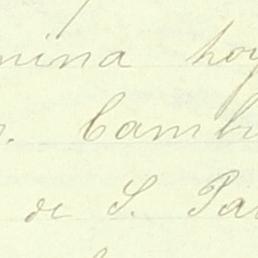 mina ho
s. Camb
de S. Pa